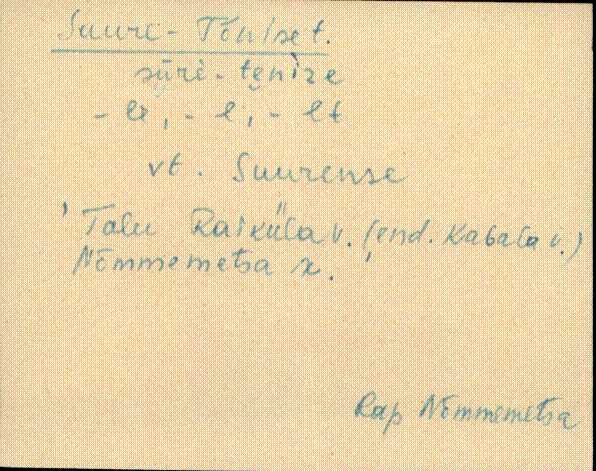 Suure-Tõnise t.
sūrè-tenìze
-le, -l, -lt
vt. Suurense
'Talu Raiküla v. (end. Kabala v.)
Nõmmemetsa k.'
Rap Nõmmemetsa